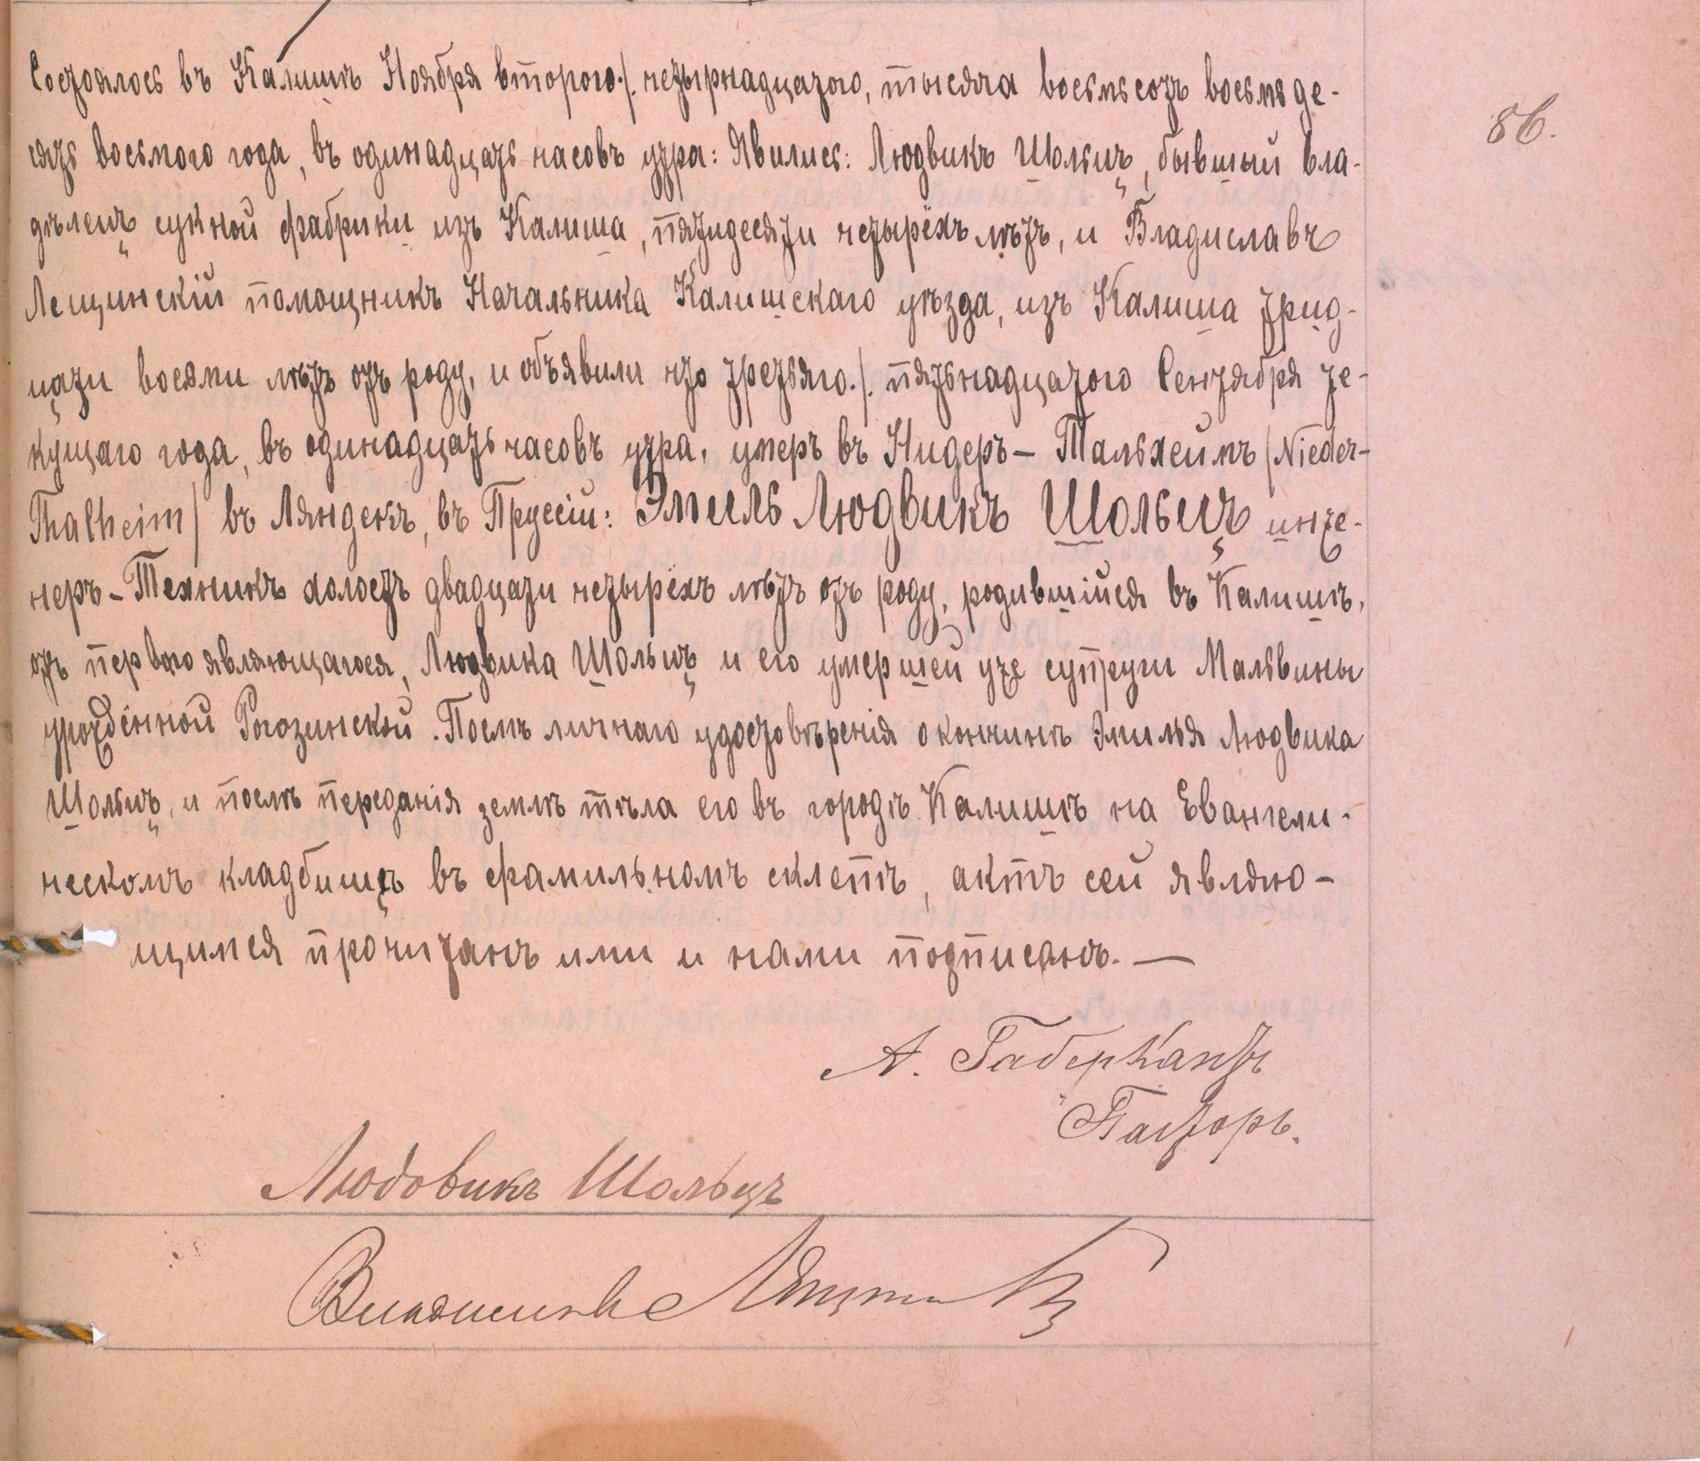 Состоялось въ Калишѣ Ноября второго./. четырнадцатого, тысяча восемьсотъ восемьде-
86.
сятъ восьмого года, въ одинадцать часовъ утра: Явились: Людвикъ Шольцъ, бывшый вла-
дѣлецъ сукной фабрики изъ Калиша, пятидесяти четырёхъ лѣтъ, и Владиславъ
Лещинскій помощникъ Начальника Калишскаго уѣзда, изъ Калиша трид-
цати восями лѣтъ отъ роду, и объявили что третьяго./. пятьнадцатого Сентября те-
кущаго года, въ одинадцать часовъ утра, умеръ въ Нидеръ- Тальхеймъ /Nieder-
Thalheim/ въ Ляндекъ, въ Пруссіи: Эмиль Людвикъ Шольцъ инже-
неръ-Техникъ холостъ двадцати четырёхъ лѣтъ отъ роду, родившійся въ Калишѣ,
отъ первого являющагося, Людвика Шольцъ и его умершей уже супруги Мальвины
урождённой Рогозинской. Послѣ личнаго удостовѣренія о кончинѣ Эмилья Людвика
Шольцъ, и послѣ переданія землѣ тѣла его въ городѣ Калишѣ на Евангели-
ческомъ кладбищѣ въ фамильномъ склепѣ, актъ сей являю-
щимся прочитанъ ими и нами подписанъ. —
А. Габеркантъ
Пасторъ.
Людовикъ Шольцъ
Владиславъ